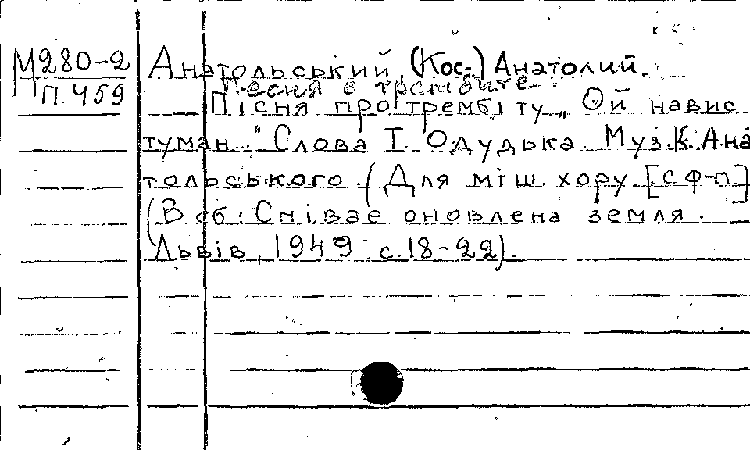 М280-2
П.459
Анатольський (Кос-) Анатолий.
Песня о трембите
Пісня про трембіту „Ой навис
туман." Слова І Одудька. Муз.К.Ана
тольського (Для міш. хору [с ф-п]
(В зб: Співає оновлена земля.
Львів, 1949 с.18-22).